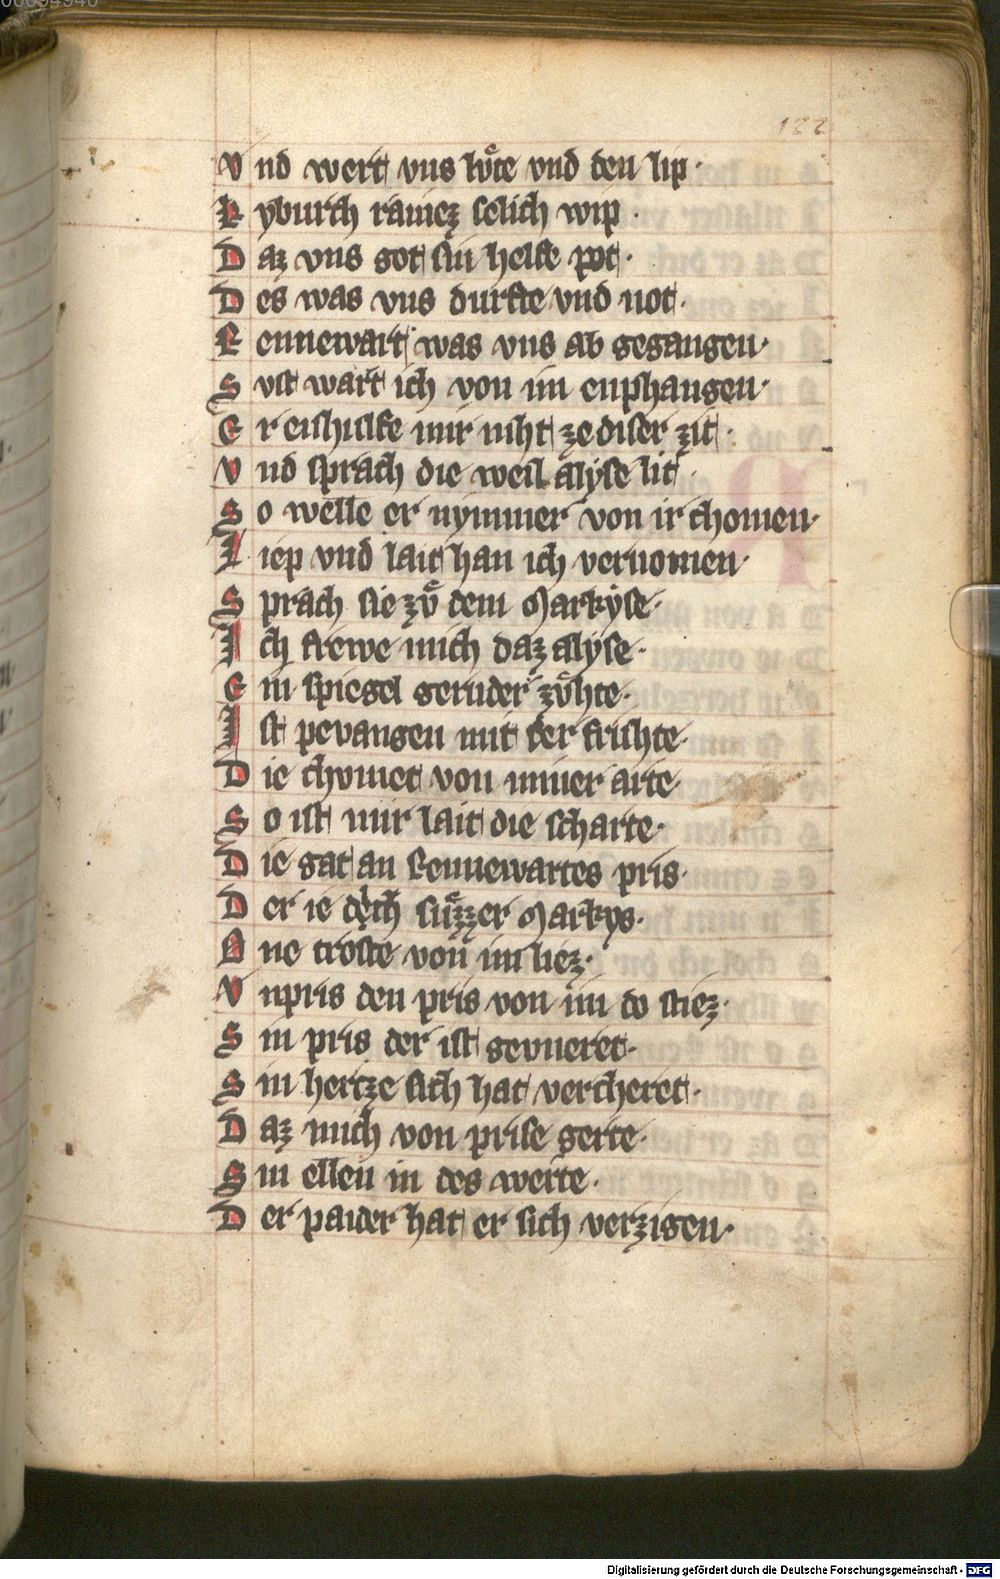 122
Vnd wert vns lvͦte vnd den lip·
Kyburch raniez selich wip·
Daz vns got sin helfe pot·
Des was vns durfte vnd not·
Rennewart was vns ab gegangen·
Svst wart ich von im enphangen·
Er enhulfe mir niht ze diser zit·
Vnd sprach die weil alyse lit
So welle er nymmer von ir chomen·
Liep vnd lait han ich vernomen·
Sprach sie zvͦ dem Markyse·
Ich frewe mich daz alyse·
Ein spiegel gernder zvͤhte·
Ist pevangen mit der frvhte·
Die chomet von miner arte
So ist mir lait die scharte·
Die gat an Rennewartes pris·
Der ie doch suͤzzer Markys·
Ane troste von im liez·
Vnpris den pris von im do stiez·
Sin pris der ist gevneret·
Sin hertze sich hat vercheret·
Daz mich von prise gerte·
Sin ellen in des werte·
Der paider hat er sich verzigen·
Digitalisierung gefördert durch die Deutsche Forschungsgemeinschaft - DFG